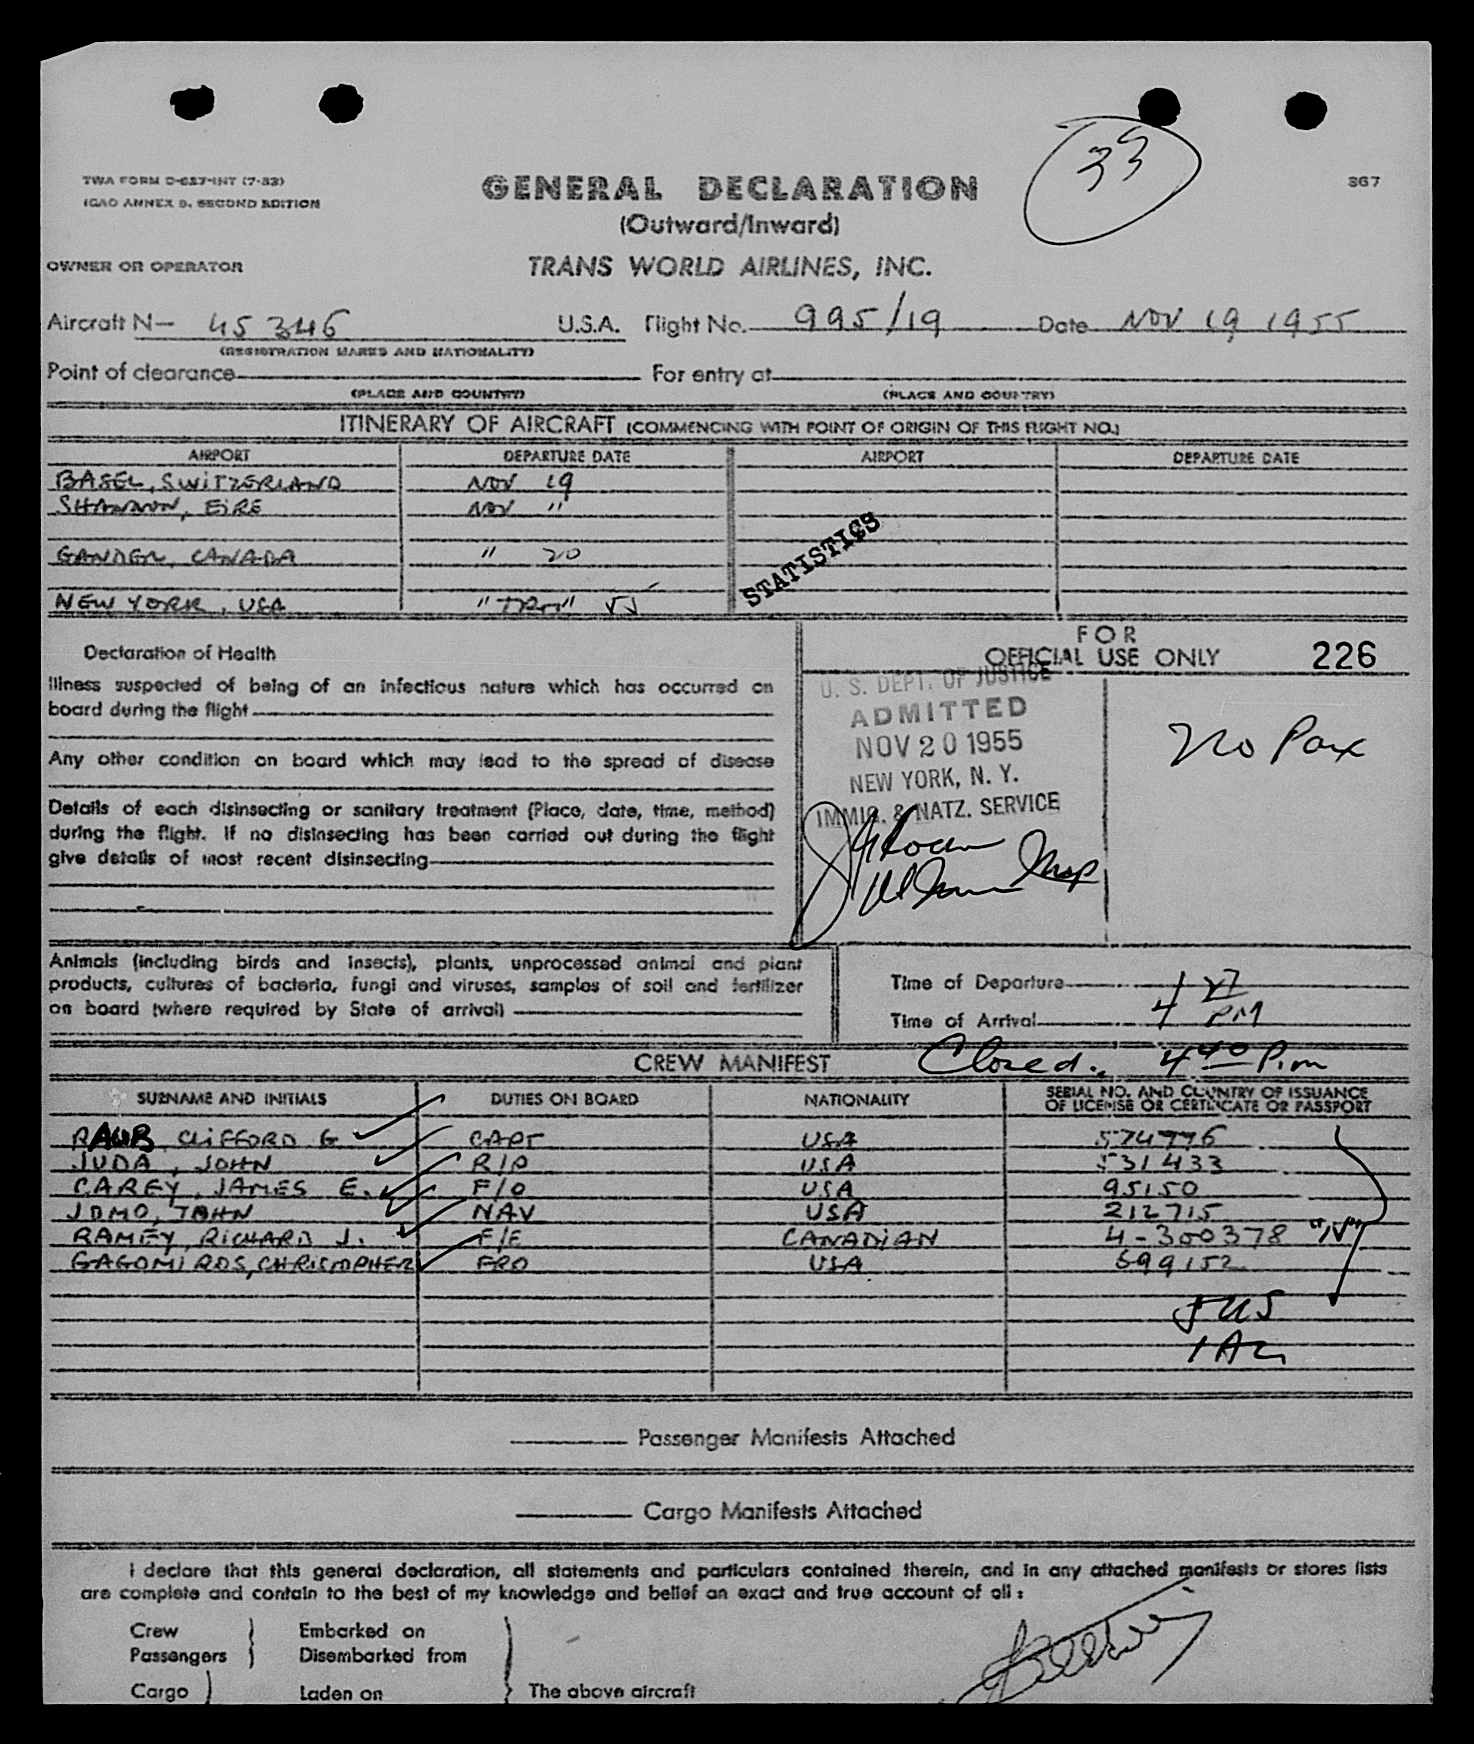 33
TWA FORM D-627-INT (7-53)
ICAO ANNEX 9, SECOND EDITION
GENERAL DECLARATION
367
(Outward/Inward)
OWNER OR OPERATOR
TRANS WORLD AIRLINES, INC.
Aircraft N— 45346 U.S.A. Flight No. 995/19 Date NOV 19 1955
(REGISTRATION MARKS AND NATIONALITY)
Point of clearance For entry at
(PLACE AND COUNTRY) (PLACE AND COUNTRY)
ITINERARY OF AIRCRAFT (COMMENCING WITH POINT OF ORIGIN OF THIS FLIGHT NO.)
AIRPORT DEPARTURE DATE AIRPORT DEPARTURE DATE
BASEL, SWITZERLAND NOV 19
SHANNON, EIRE NOV "
GANDER, CANADA " 20
NEW YORK, USA
STATISTICS
Declaration of Health
FOR
OFFICIAL USE ONLY 226
Illness suspected of being of an infectious nature which has occurred on
board during the flight
Any other condition on board which may lead to the spread of disease
Details of each disinsecting or sanitary treatment (Place, date, time, method)
during the flight. If no disinsecting has been carried out during the flight
give details of most recent disinsecting
U. S. DEPT. OF JUSTICE
ADMITTED
NOV 20 1955
NEW YORK, N. Y.
IMMIG. & NATZ. SERVICE
Insp
No Pax
Animals (including birds and insects), plants, unprocessed animal and plant
products, cultures of bacteria, fungi and viruses, samples of soil and fertilizer
on board (where required by State of arrival)
Time of Departure
Time of Arrival 4 27 PM
CREW MANIFEST
Closed. 4 40 P.m
SURNAME AND INITIALS DUTIES ON BOARD NATIONALITY SERIAL NO. AND COUNTRY OF ISSUANCE
OF LICENSE OR CERTIFICATE OR PASSPORT
RAUB, CLIFFORD G CAPT USA 574776
JUDA, JOHN R/O USA 531433
CAREY, JAMES E. F/O USA 95150
JOMO, JOHN NAV USA 212715
RAMEY, RICHARD J. F/E CANADIAN 4-300378 "N"
GAGOMIROS, CHRISTOPHER FRO USA 699152
5 US
1 AL
Passenger Manifests Attached
Cargo Manifests Attached
I declare that this general declaration, all statements and particulars contained therein, and in any attached manifests or stores lists
are complete and contain to the best of my knowledge and belief an exact and true account of all :
Crew Embarked on
Passengers Disembarked from
Cargo Laden on The above aircraft